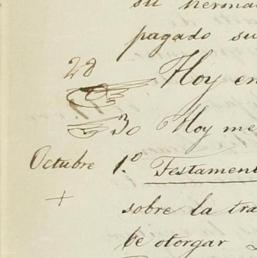 su herma
pagado su
28 Hoy en
30 Hoy me
Octubre 1.º Testament
sobre la tra
de otorgar